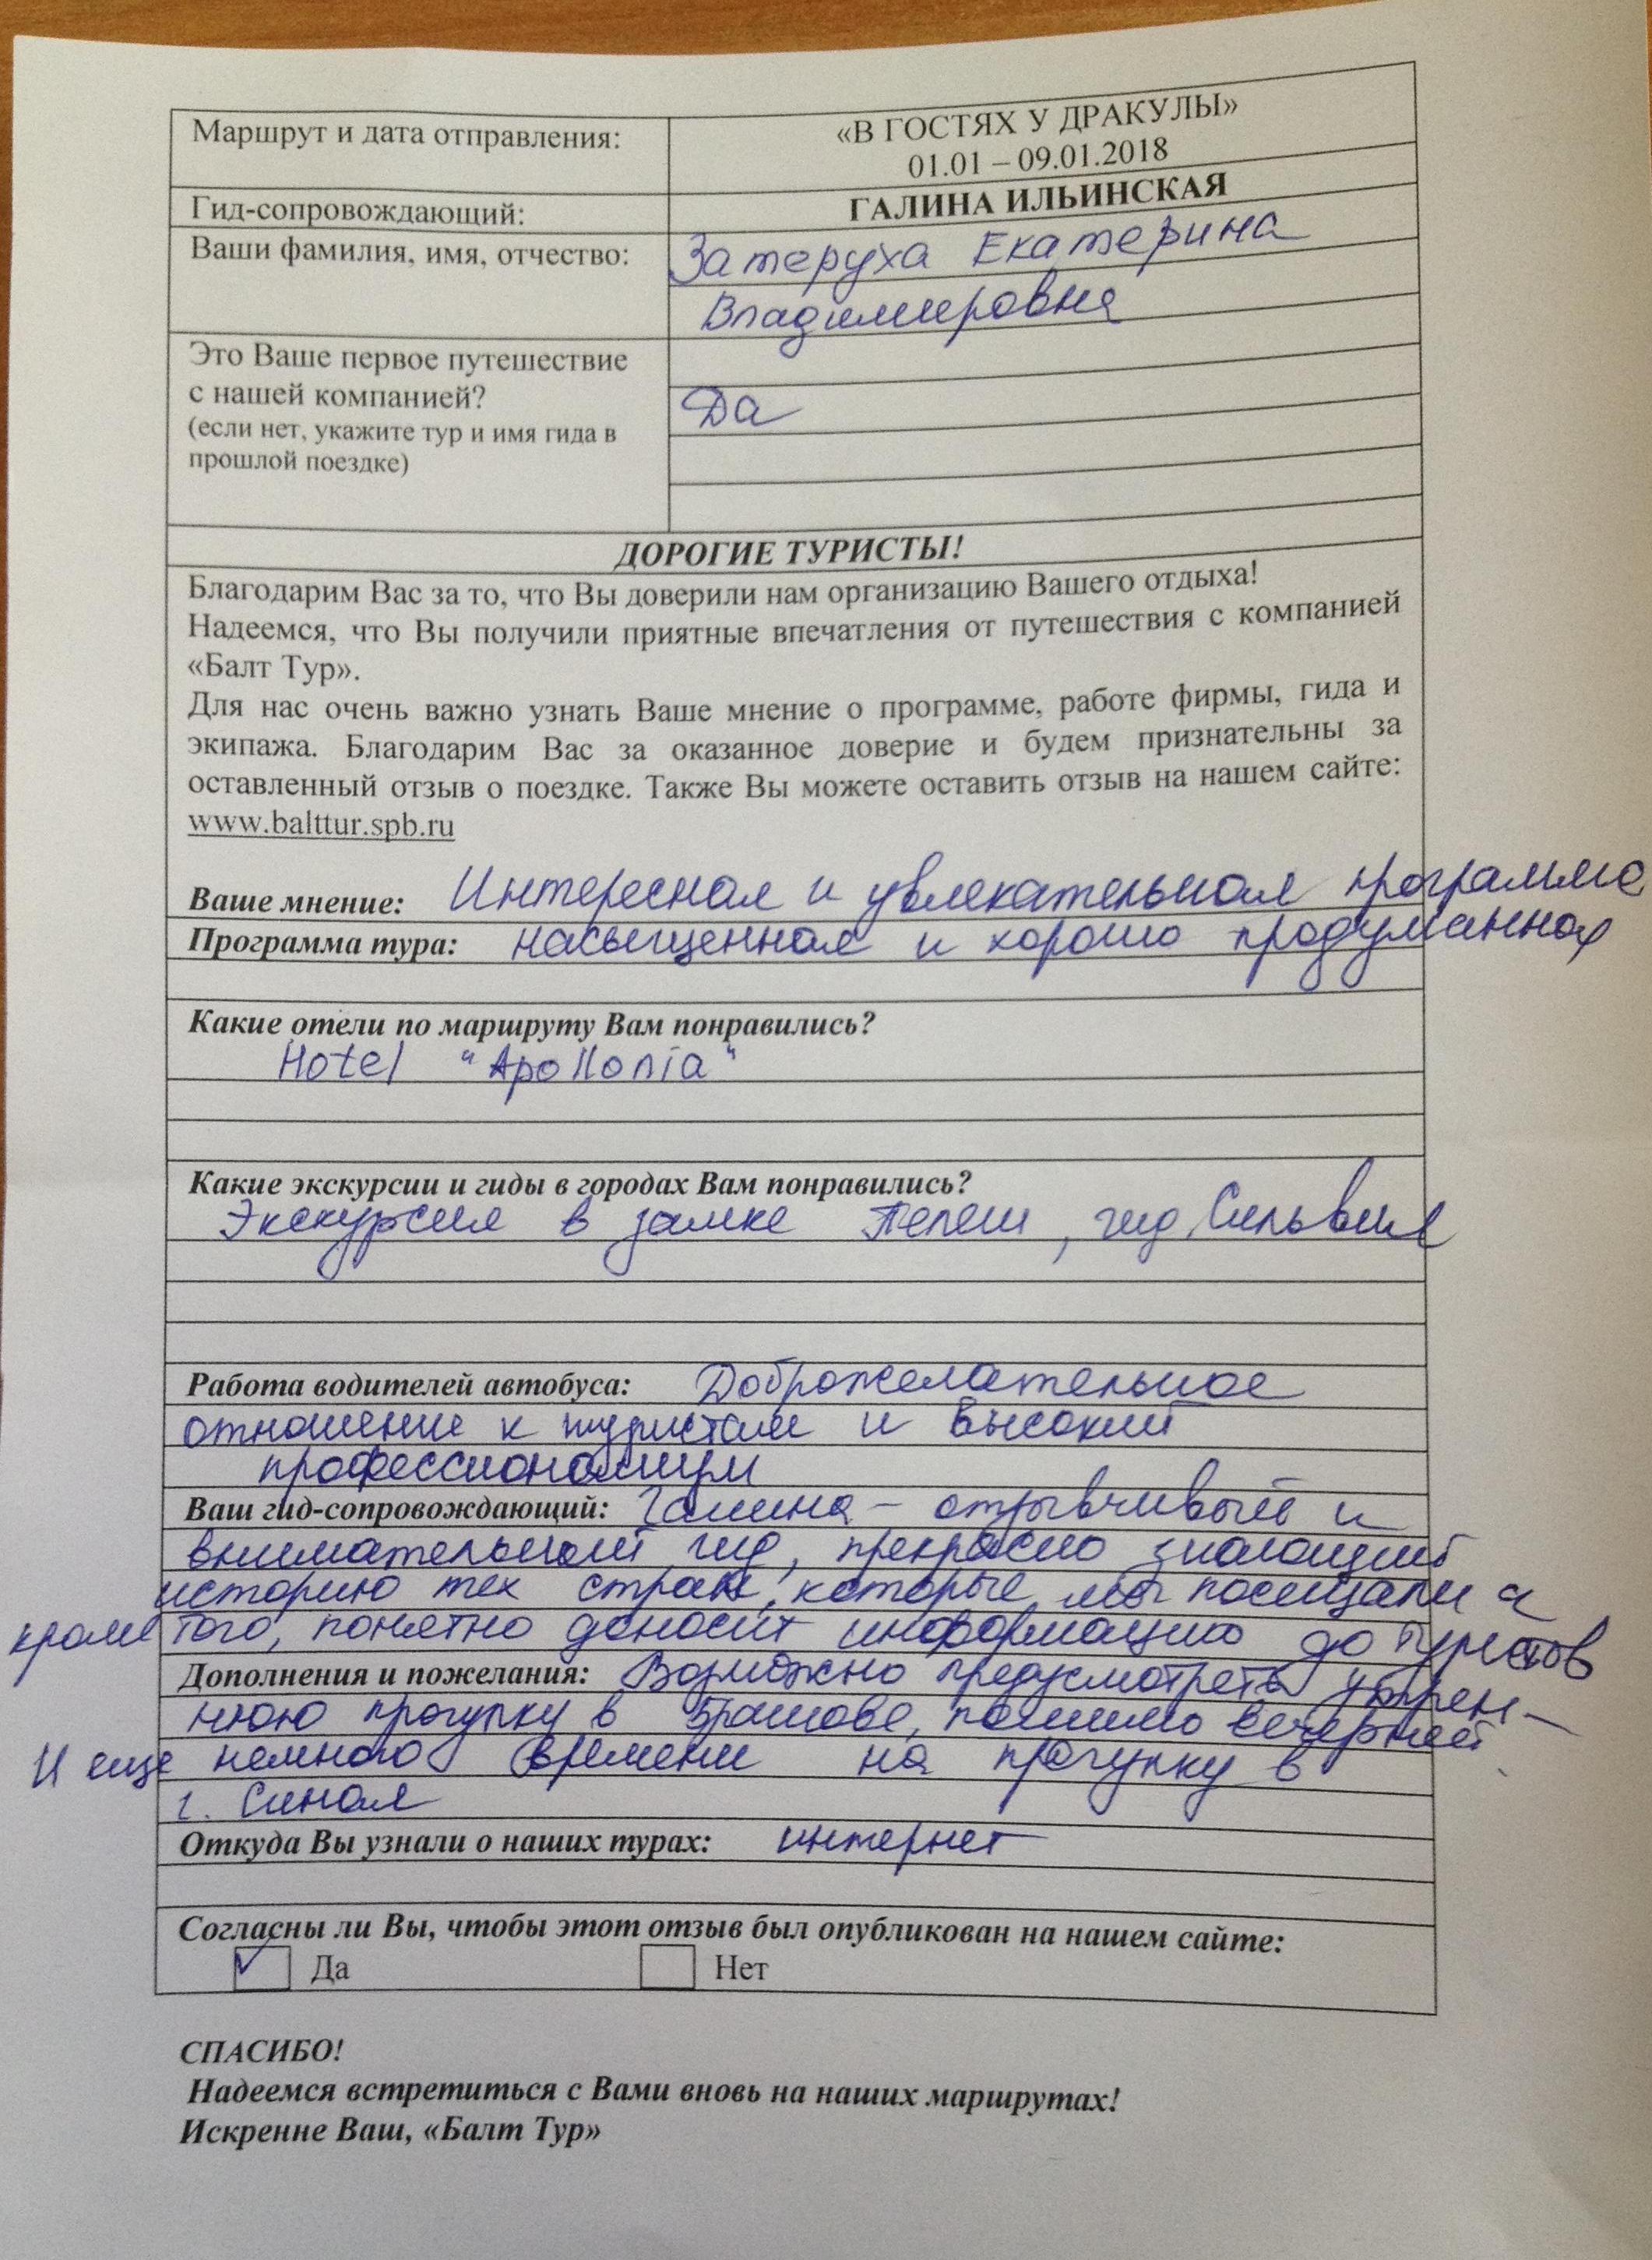 Маршрут и дата отправления:
«В ГОСТЯХ У ДРАКУЛЫ»
01.01 – 09.01.2018
Гид-сопровождающий:
ГАЛИНА ИЛЬИНСКАЯ
Ваши фамилия, имя, отчество:
Затеруха Екатерина
Владимировна
Это Ваше первое путешествие
с нашей компанией?
(если нет, укажите тур и имя гида в
прошлой поездке)
Да
ДОРОГИЕ ТУРИСТЫ!
Благодарим Вас за то, что Вы доверили нам организацию Вашего отдыха!
Надеемся, что Вы получили приятные впечатления от путешествия с компанией
«Балт Тур».
Для нас очень важно узнать Ваше мнение о программе, работе фирмы, гида и
экипажа. Благодарим Вас за оказанное доверие и будем признательны за
оставленный отзыв о поездке. Также Вы можете оставить отзыв на нашем сайте:
www.balttur.spb.ru
Ваше мнение: Интересная и увлекательная программа
Программа тура: насыщенная и хорошо продуманная
Какие отели по маршруту Вам понравились?
Hotel "Apollonia"
Какие экскурсии и гиды в городах Вам понравились?
Экскурсия в замке Пелеш, гид Сильвия
Работа водителей автобуса: Доброжелательное
отношение к туристам и высокий
профессионализм
Ваш гид-сопровождающий: Галина – отзывчивый и
внимательный гид, прекрасно знающий
историю тех стран, которые мы посещали а
кроме того, понятно доносит информацию до туристов
Дополнения и пожелания: Возможно предусмотреть утрен-
нюю прогулку в Брашове, помимо вечерней.
И еще немного времени на прогулку в
г. Синая
Откуда Вы узнали о наших турах: интернет
Согласны ли Вы, чтобы этот отзыв был опубликован на нашем сайте:
Да Нет
СПАСИБО!
Надеемся встретиться с Вами вновь на наших маршрутах!
Искренне Ваш, «Балт Тур»